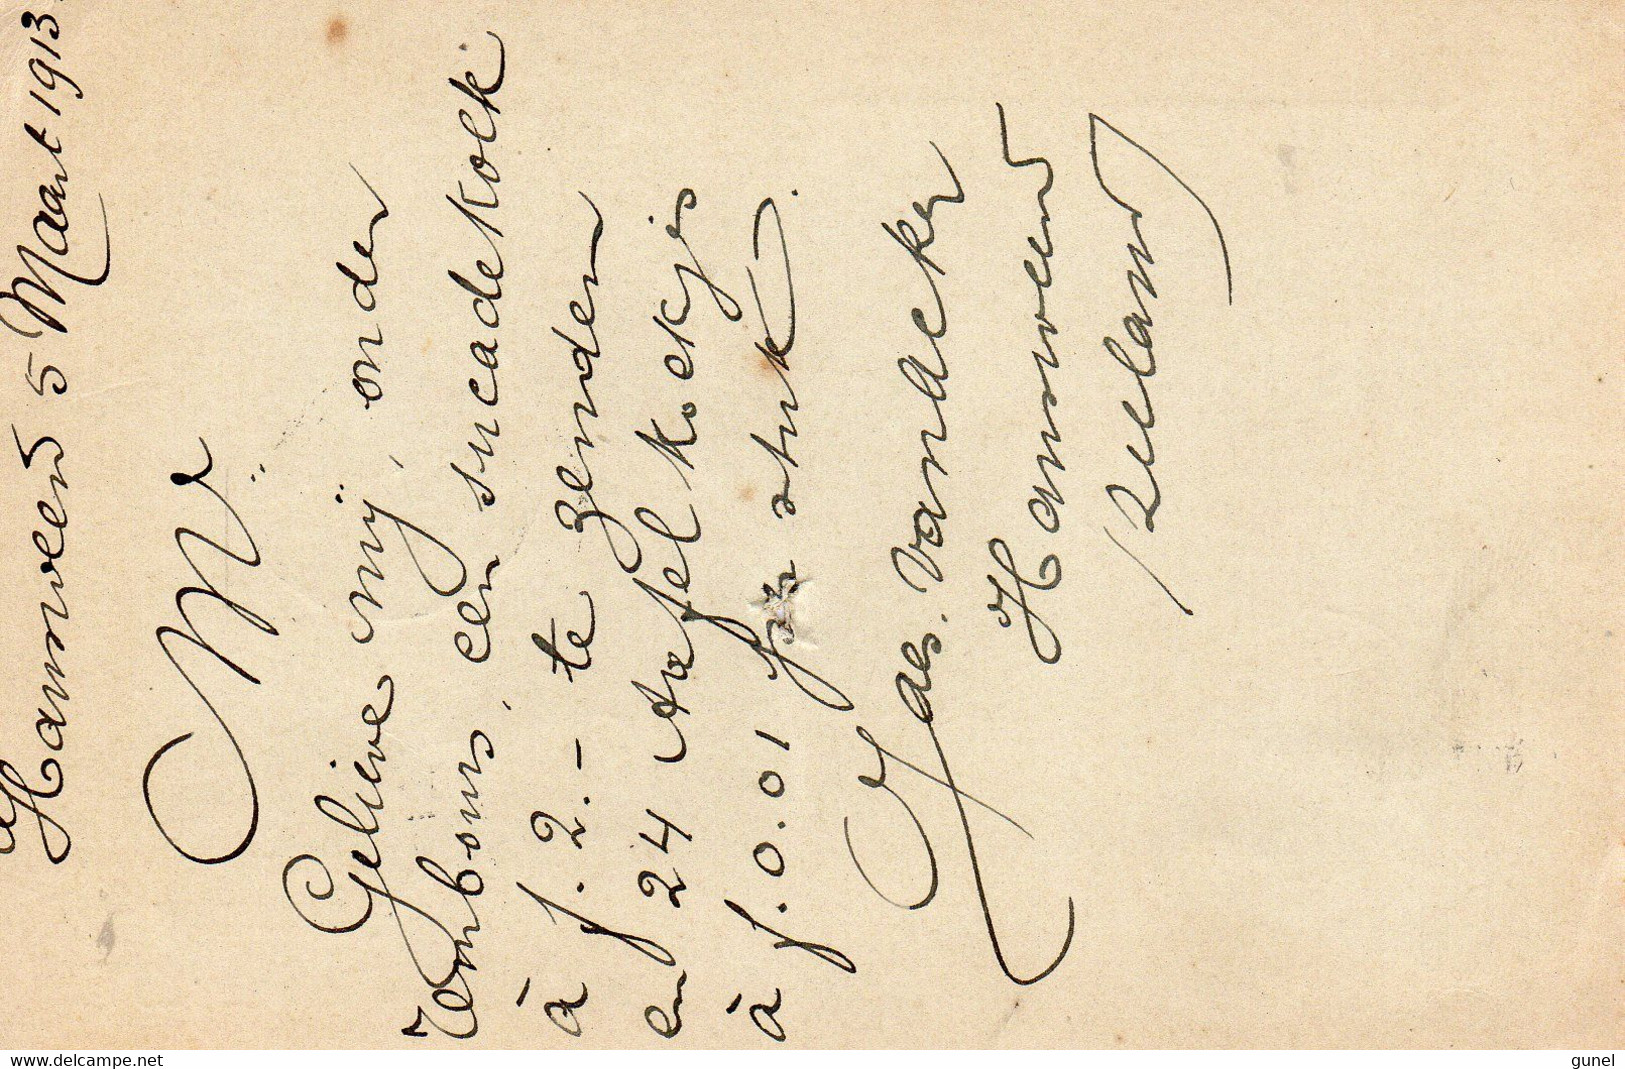 Hamweend 5 Maart 1913.
M
Gelieve mij, onder
rembours, een sucadekoek
à f. 2.- te zenden
en 24 tafelkoekjes
à f. 0.01 per stuk.
Jac. Vanacker
Hamweend
Zeeland
www.delcampe.net
gunel